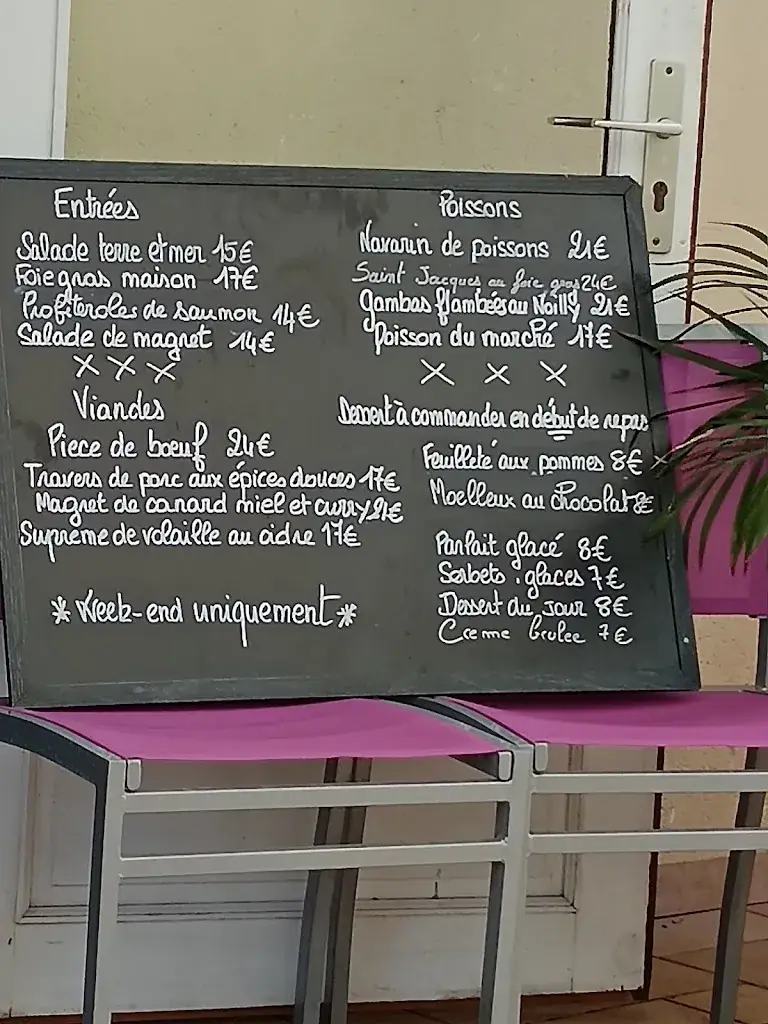 Entrées
Salade terre et mer 15€
Foie gras maison 17€
Profiteroles de saumon 14€
Salade de magret 14€
X X X
Viandes
Piece de boeuf 24€
Travers de porc aux épices douces 17€
Magret de canard miel et curry 21€
Supreme de volaille au cidre 17€
* Week-end uniquement *
Poissons
Navarin de poissons 21€
Saint Jacques au foie gras 24€
Gambas flambées au Noilly 21€
Poisson du marché 17€
X X X
Dessert à commander en début de repas
Feuilleté aux pommes 8€
Moelleux au chocolat 8€
Parfait glacé 8€
Sorbets . glaces 7€
Dessert du jour 8€
Creme brulee 7€